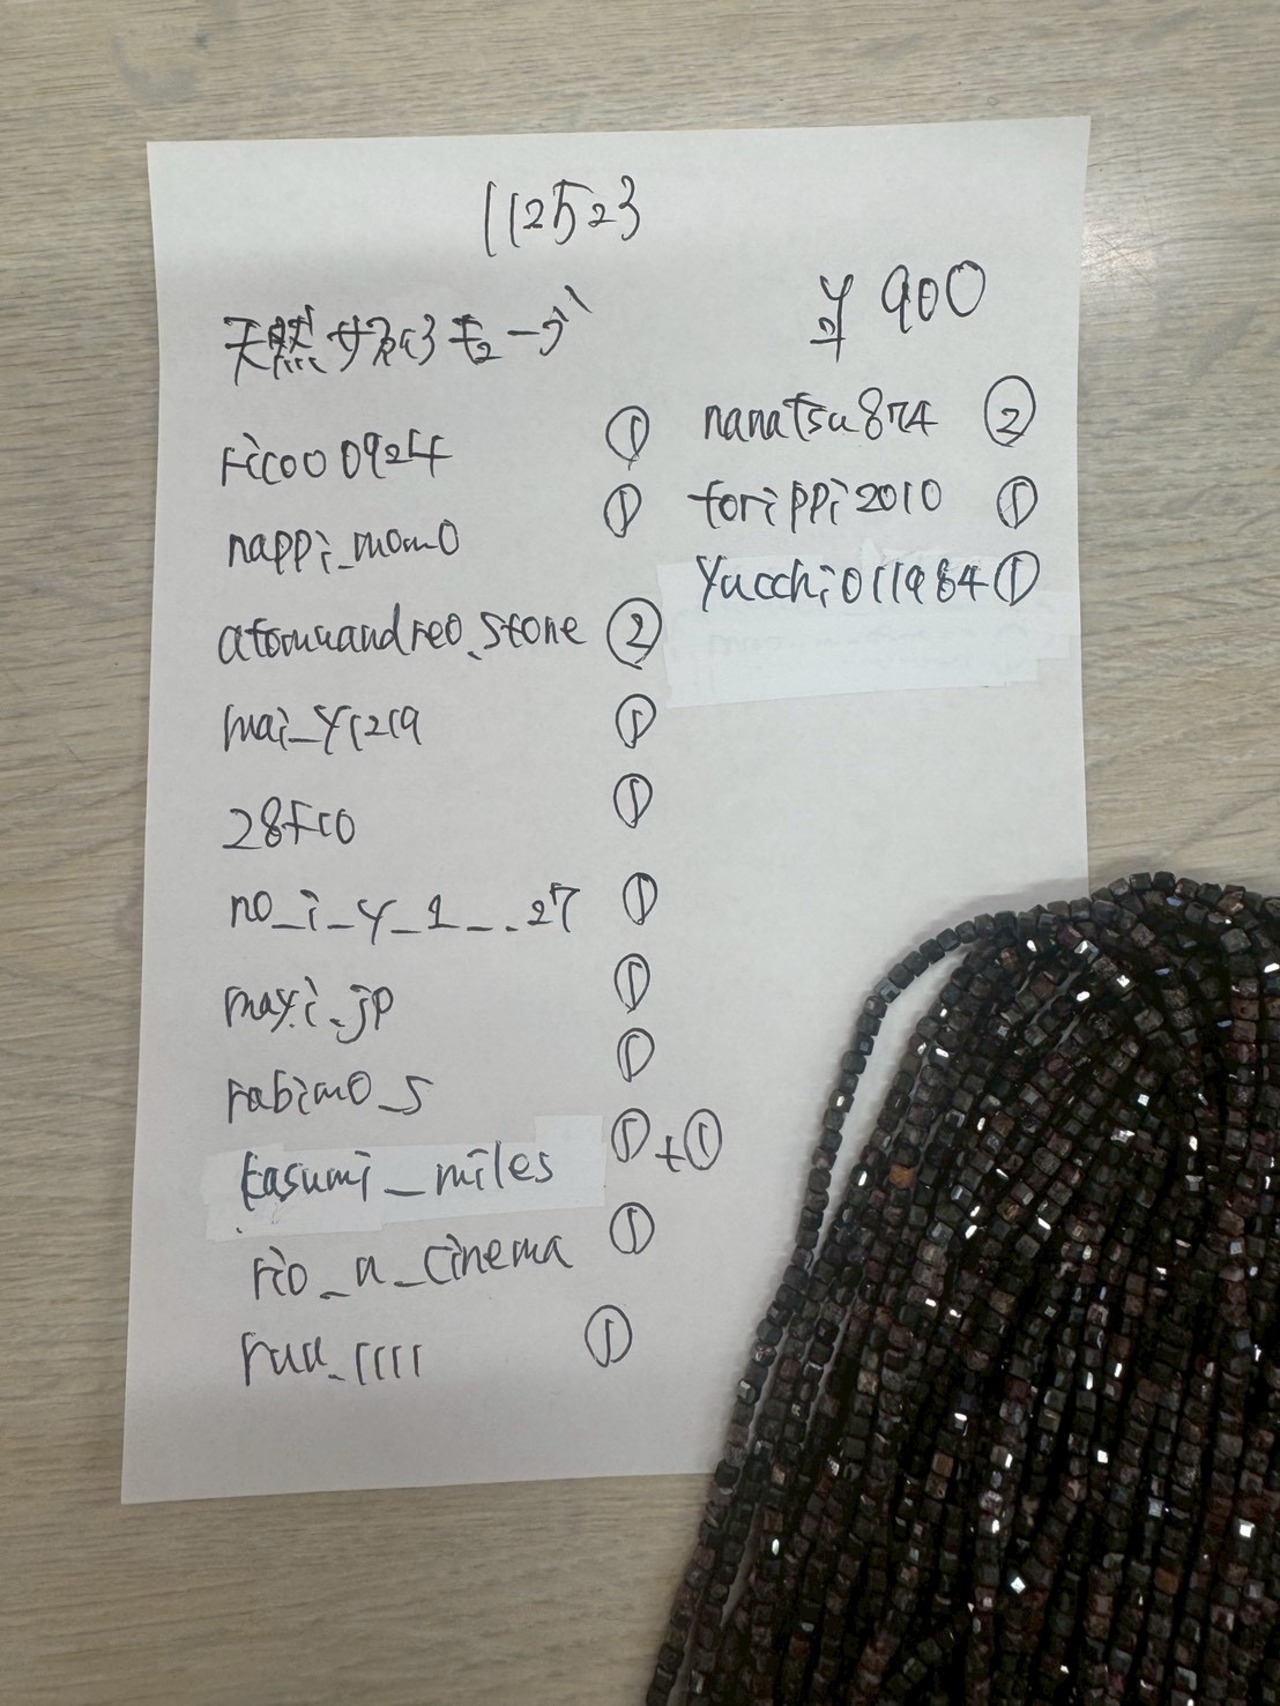 112523
天然
¥ 900
ricoo0924 ①
nappi_momo ①
atomuandreo_stone ②
mai_y1219 ①
28fco ①
no_i_y_1_..27 ①
mayi.jp ①
rabimo_s ①
kasumi_miles ①+①
rio_a_cinema ①
ruu_1111 ①
nanatsu874 ②
torippi2010 ①
yucchi011984 ①